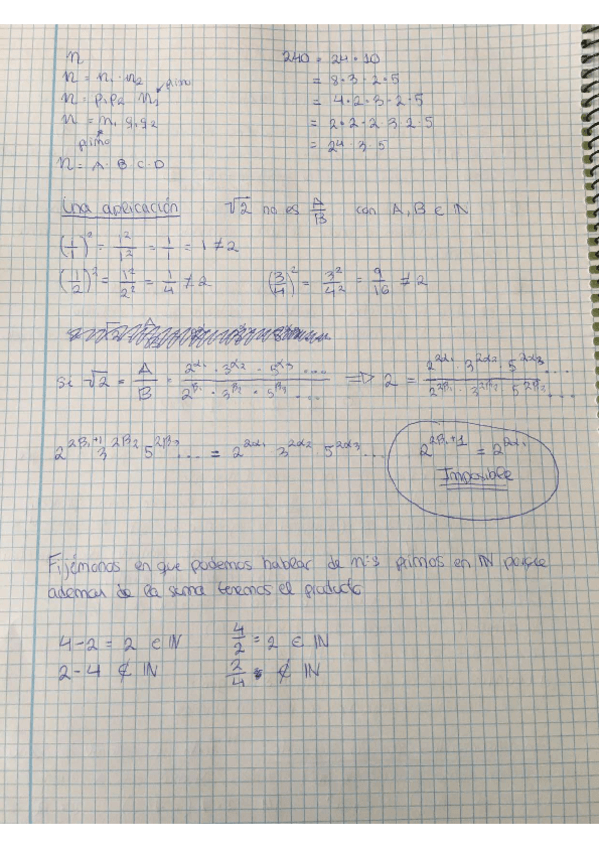 n
n = n₁ · n₂
n = p₁p₂ n₃ primo
n = m₁ q₁q₂
primo
n = A · B · C · D
240 = 24 · 10
= 8 · 3 · 2 · 5
= 4 · 2 · 3 · 2 · 5
= 2 · 2 · 2 · 3 · 2 · 5
= 2⁴ · 3 · 5
Una aplicación √2 no es A/B con A, B ∈ ℕ
(1/1)² = 1²/1² = 1/1 = 1 ≠ 2
(1/2)² = 1²/2² = 1/4 ≠ 2 (3/4)² = 3²/4² = 9/16 ≠ 2
si √2 = A/B = 2^α₁ · 3^α₂ · 5^α₃ .... / 2^β₁ · 3^β₂ · 5^β₃ ... => 2 = 2^2α₁ · 3^2α₂ · 5^2α₃ ... / 2^2β₁ · 3^2β₂ 5^2β₃ ...
2^2β₁+1 3^2β₂ 5^2β₃ ... = 2^2α₁ 3^2α₂ 5^2α₃ ... 2^2β₁+1 = 2^2α₁
Imposible
Fijémonos en que podemos hablar de nºs primos en ℕ porque
ademas de la suma tenemos el producto
4 - 2 = 2 ∈ ℕ 4/2 = 2 ∈ ℕ
2 - 4 ∉ ℕ 2/4 ∉ ℕ